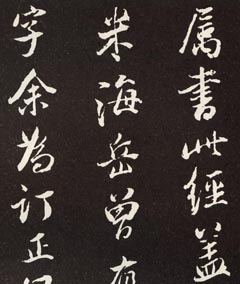 属書此經蓋
米海岳曽有
字余為訂正